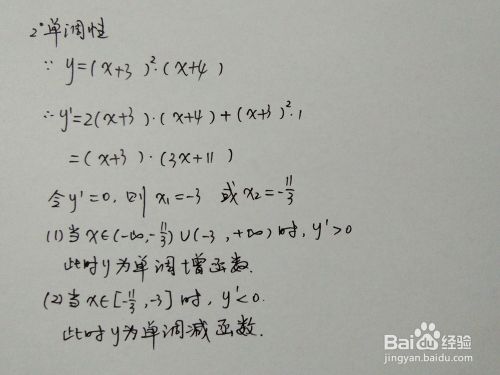 2°单调性
∵ y=(x+3)²·(x+4)
∴ y'=2(x+3)·(x+4)+(x+3)²·1
=(x+3)·(3x+11)
令y'=0,则 x₁=-3 或x₂=-11/3
(1)当x∈(-∞,-11/3)∪(-3,+∞)时,y'>0
此时y为单调增函数.
(2)当x∈[-11/3,-3]时,y'<0.
此时y为单调减函数.
Baidu经验
jingyan.baidu.com